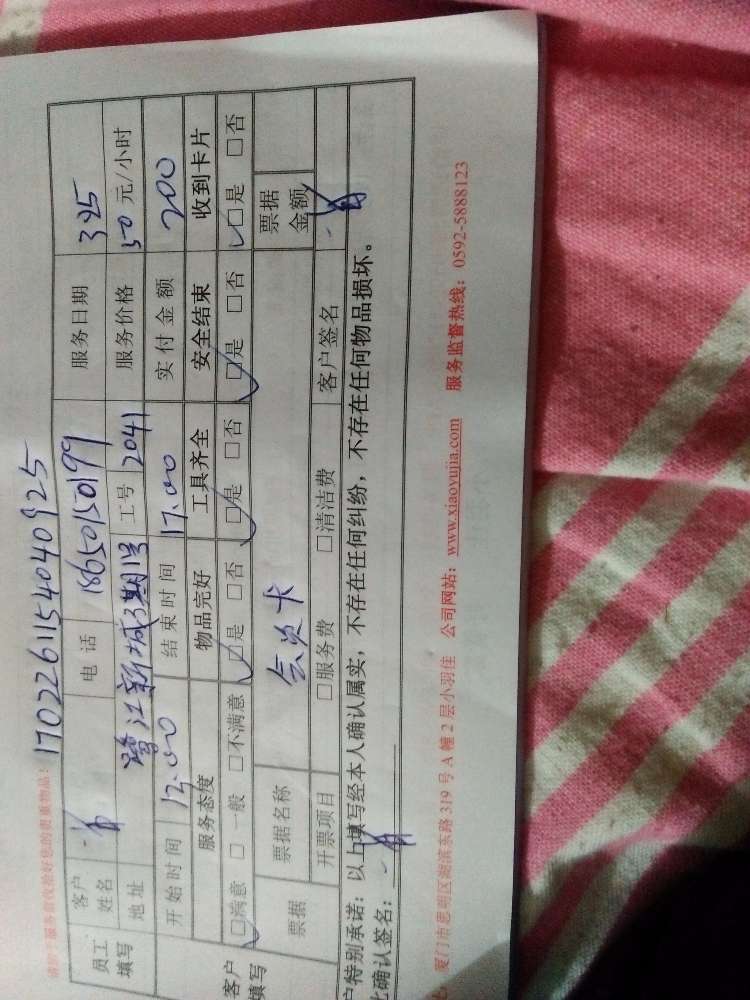 请您于服务前收拾好您的贵重物品！ 170226115404040925
员工填写 客户姓名 电话 18650150199 服务日期 325
地址 鹭江新城3期1号 工号 2041 服务价格 50 元/小时
开始时间 13.00 结束时间 17.00 实付金额 200
客户填写 服务态度 物品完好 工具齐全 安全结束 收到卡片
☑满意 □一般 □不满意 ☑是 □否 ☑是 □否 ☑是 □否 ☑是 □否
票据 票据名称 会员卡 票据金额
开票项目 □服务费 □清洁费 客户签名
户特别承诺：以上填写经本人确认属实，不存在任何纠纷，不存在任何物品损坏。
此确认签名：
厦门市思明区湖滨东路 319 号 A 幢 2 层小羽佳 公司网站：www.xiaoyujia.com 服务监督热线：0592-5888123